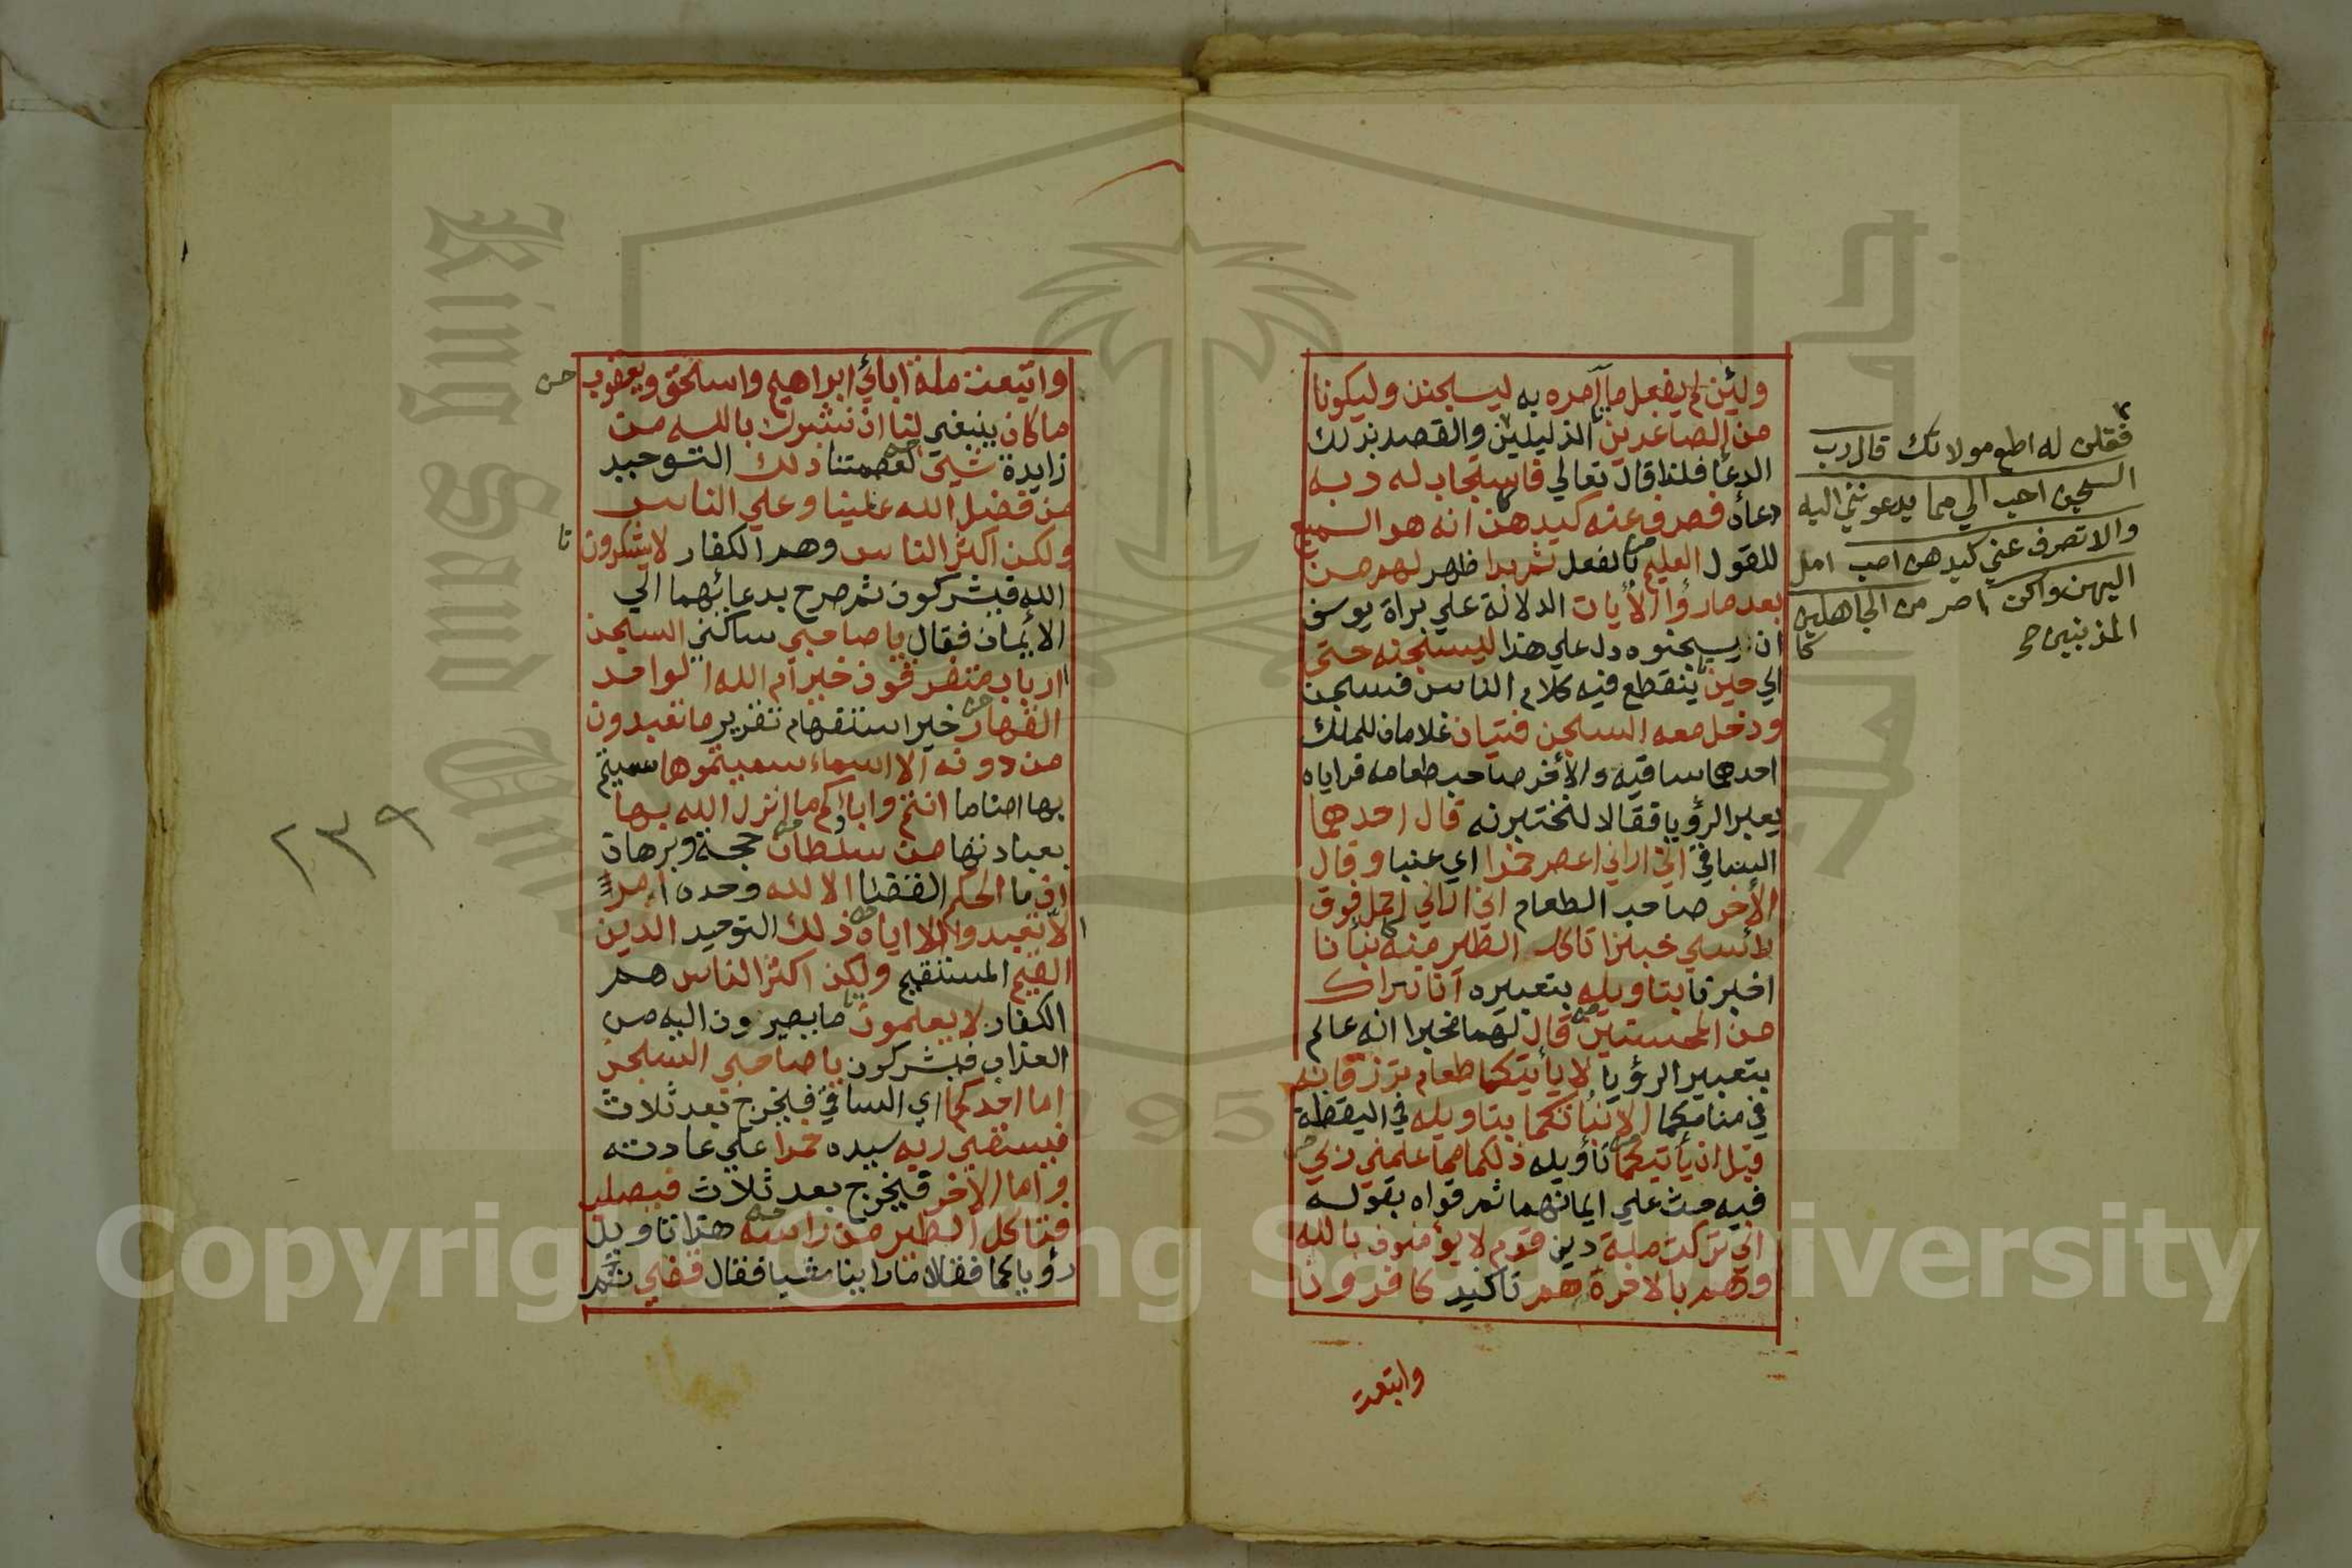 ولئن لم يفعل ما آمره به ليسجنن وليكونا
من الصاغرين الذليلين والقصد بذلك
الدعا فلذا قال تعالي فاستجاب له ربه
دعاه فصرف عنه كيدهن انه هو السميع
للقول العليم بالفعل ثم بدا ظهر لهم من
بعد ما رأوا الأيات الدلالة علي براة يوسف
ان يسجنوه دل علي هذا ليسجننه حتي
الي حين ينقطع فيه كلام الناس فسجن
ودخل معه السجن فتيان غلامان للملك
احدهما ساقيه والأخر صاحب طعامه فراياه
يعبر الرؤيا فقالا لنختبرنه قال احدهما
الساقي اني اراني اعصر خمرا اي عنبا وقال
الأخر صاحب الطعام اني اراني احمل فوق
رأسي خبزا تاكل الطير منه نبأنا
اخبرنا بتاويله بتعبيره انا نراك
من المحسنين قال لهما مخبرا انه عالم
بتعبير الرؤيا لا يأتيكما طعام ترزقانه
في منامكما الا نبأتكما بتاويله في اليقظة
قبل ان يأتيكما تأويله ذلكما مما علمني ربي
فيه حث علي ايمانهما ثم قواه بقوله
اني تركت ملة دين قوم لا يؤمنون بالله
وهم بالاخرة هم تاكيد كافرون
واتبعت
فقلن له اطع مولاتك قال رب
السجن احب الي مما يدعونني اليه
والا تصرف عني كيدهن اصب امل
اليهن واكن اصر من الجاهلين
المذنبين
واتبعت ملة ابائي ابراهيم واسحق ويعقوب
ما كان ينبغي لنا ان نشرك بالله من
زايدة شيئ لعصمتنا ذلك التوحيد
من فضل الله علينا وعلي الناس
ولكن اكثر الناس وهم الكفار لا يشكرون
الله فيشركون ثم صرح بدعائهما الي
الأيمان فقال يا صاحبي ساكني السجن
ءارباب متفرقون خير ام الله الواحد
القهار خير استفهام تقرير ما تعبدون
من دونه الا اسماء سميتموها سميتم
بها اصناما انتم واباؤكم ما انزل الله بها
بعبادتها من سلطان حجة وبرهان
ان ما الحكم القضا الا لله وحده امر
الا تعبدوا الا اياه ذلك التوحيد الدين
القيم المستقيم ولكن اكثر الناس هم
الكفار لا يعلمون ما يصيرون اليه من
العذاب فيشركون يا صاحبي السجن
اما احدكما اي الساقي فيخرج بعد ثلاث
فيسقي ربه سيده خمرا علي عادته
واما الاخر فيخرج بعد ثلاث فيصلب
فتاكل الطير من راسه هذا تاويل
رؤياكما فقالا ما راينا شيا فقال قضي تم
٢٣٩
Copyright © King Saud University
King Saud University
1957